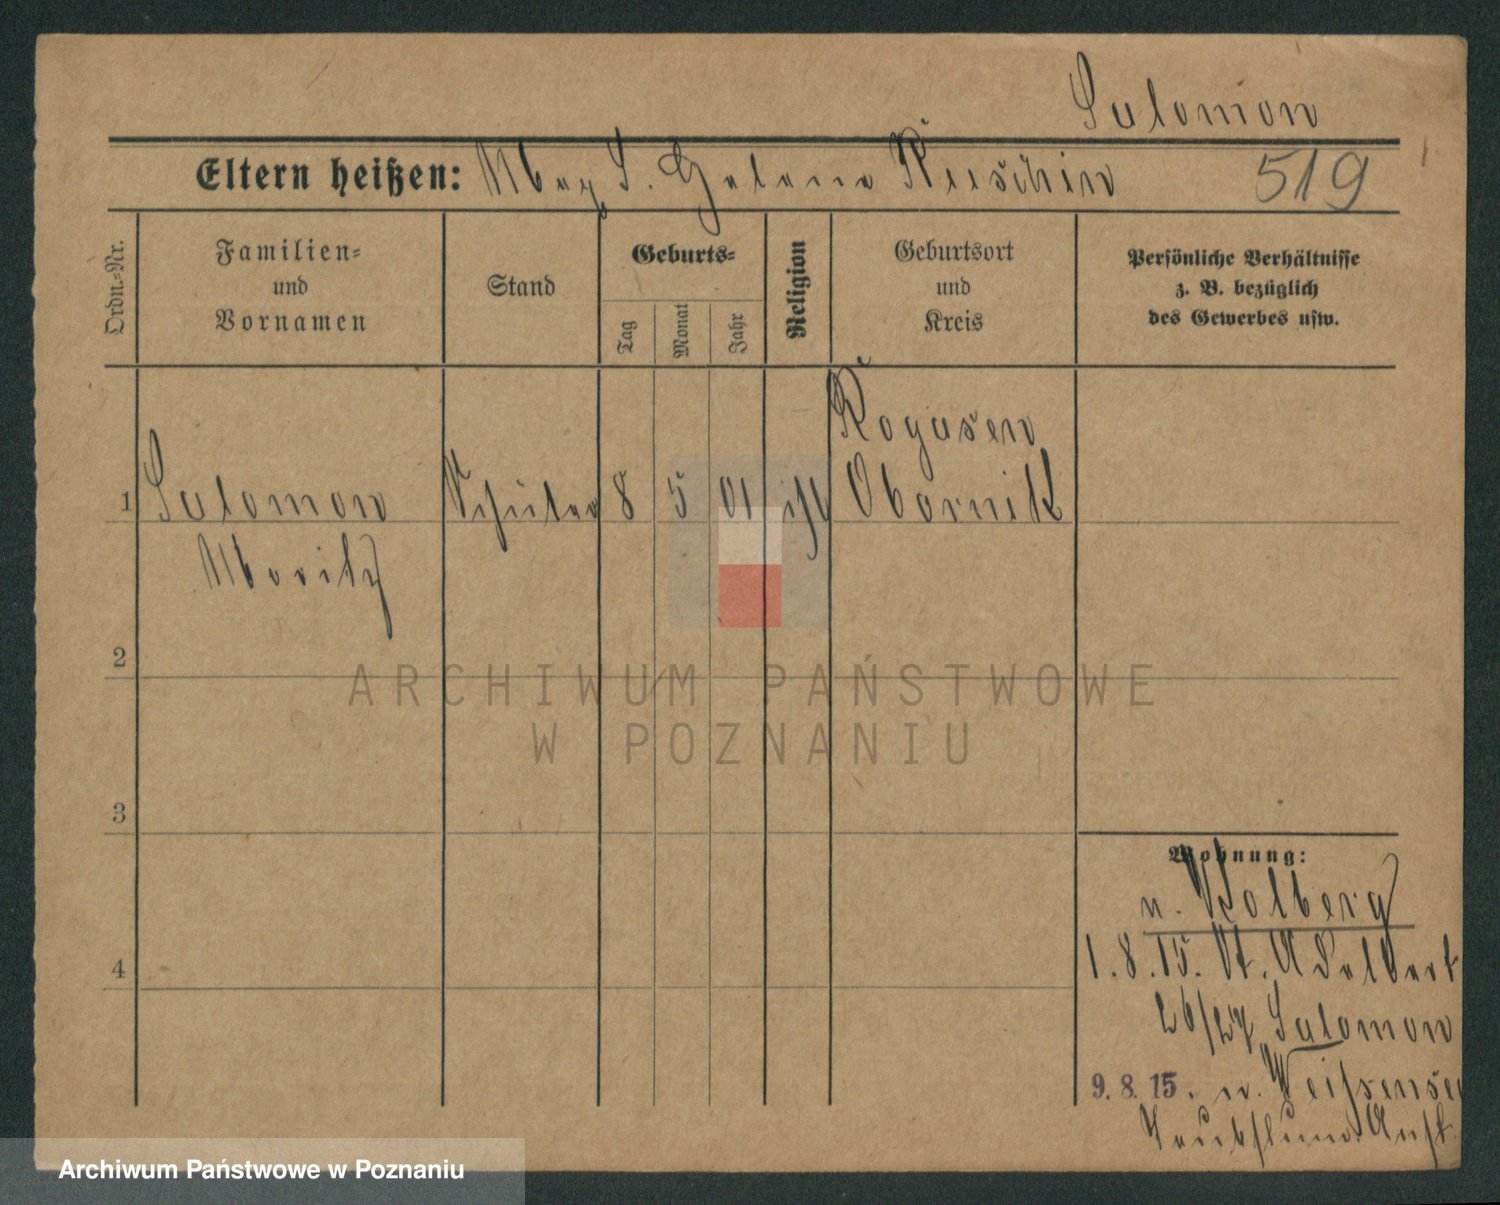 Salomon
Eltern heißen: Max S. Helene Kuschin 519
Ordn.-Nr.
Familien-
und
Vornamen
Stand
Geburts-
Tag
Monat
Jahr
Religion
Geburtsort
und
Kreis
Persönliche Verhältnisse
z. B. bezüglich
des Gewerbes usw.
Rogasen
1 Salomon Schüler 8 5 01 isr Obornik
Moritz
2
ARCHIWUM PAŃSTWOWE
W POZNANIU
3
Wohnung:
n. Kolberg
1.8.15. St. Adelbert
26/27 Salomon
4
9.8.15. n. Weißensee
Taubstumm. Anst.
Archiwum Państwowe w Poznaniu